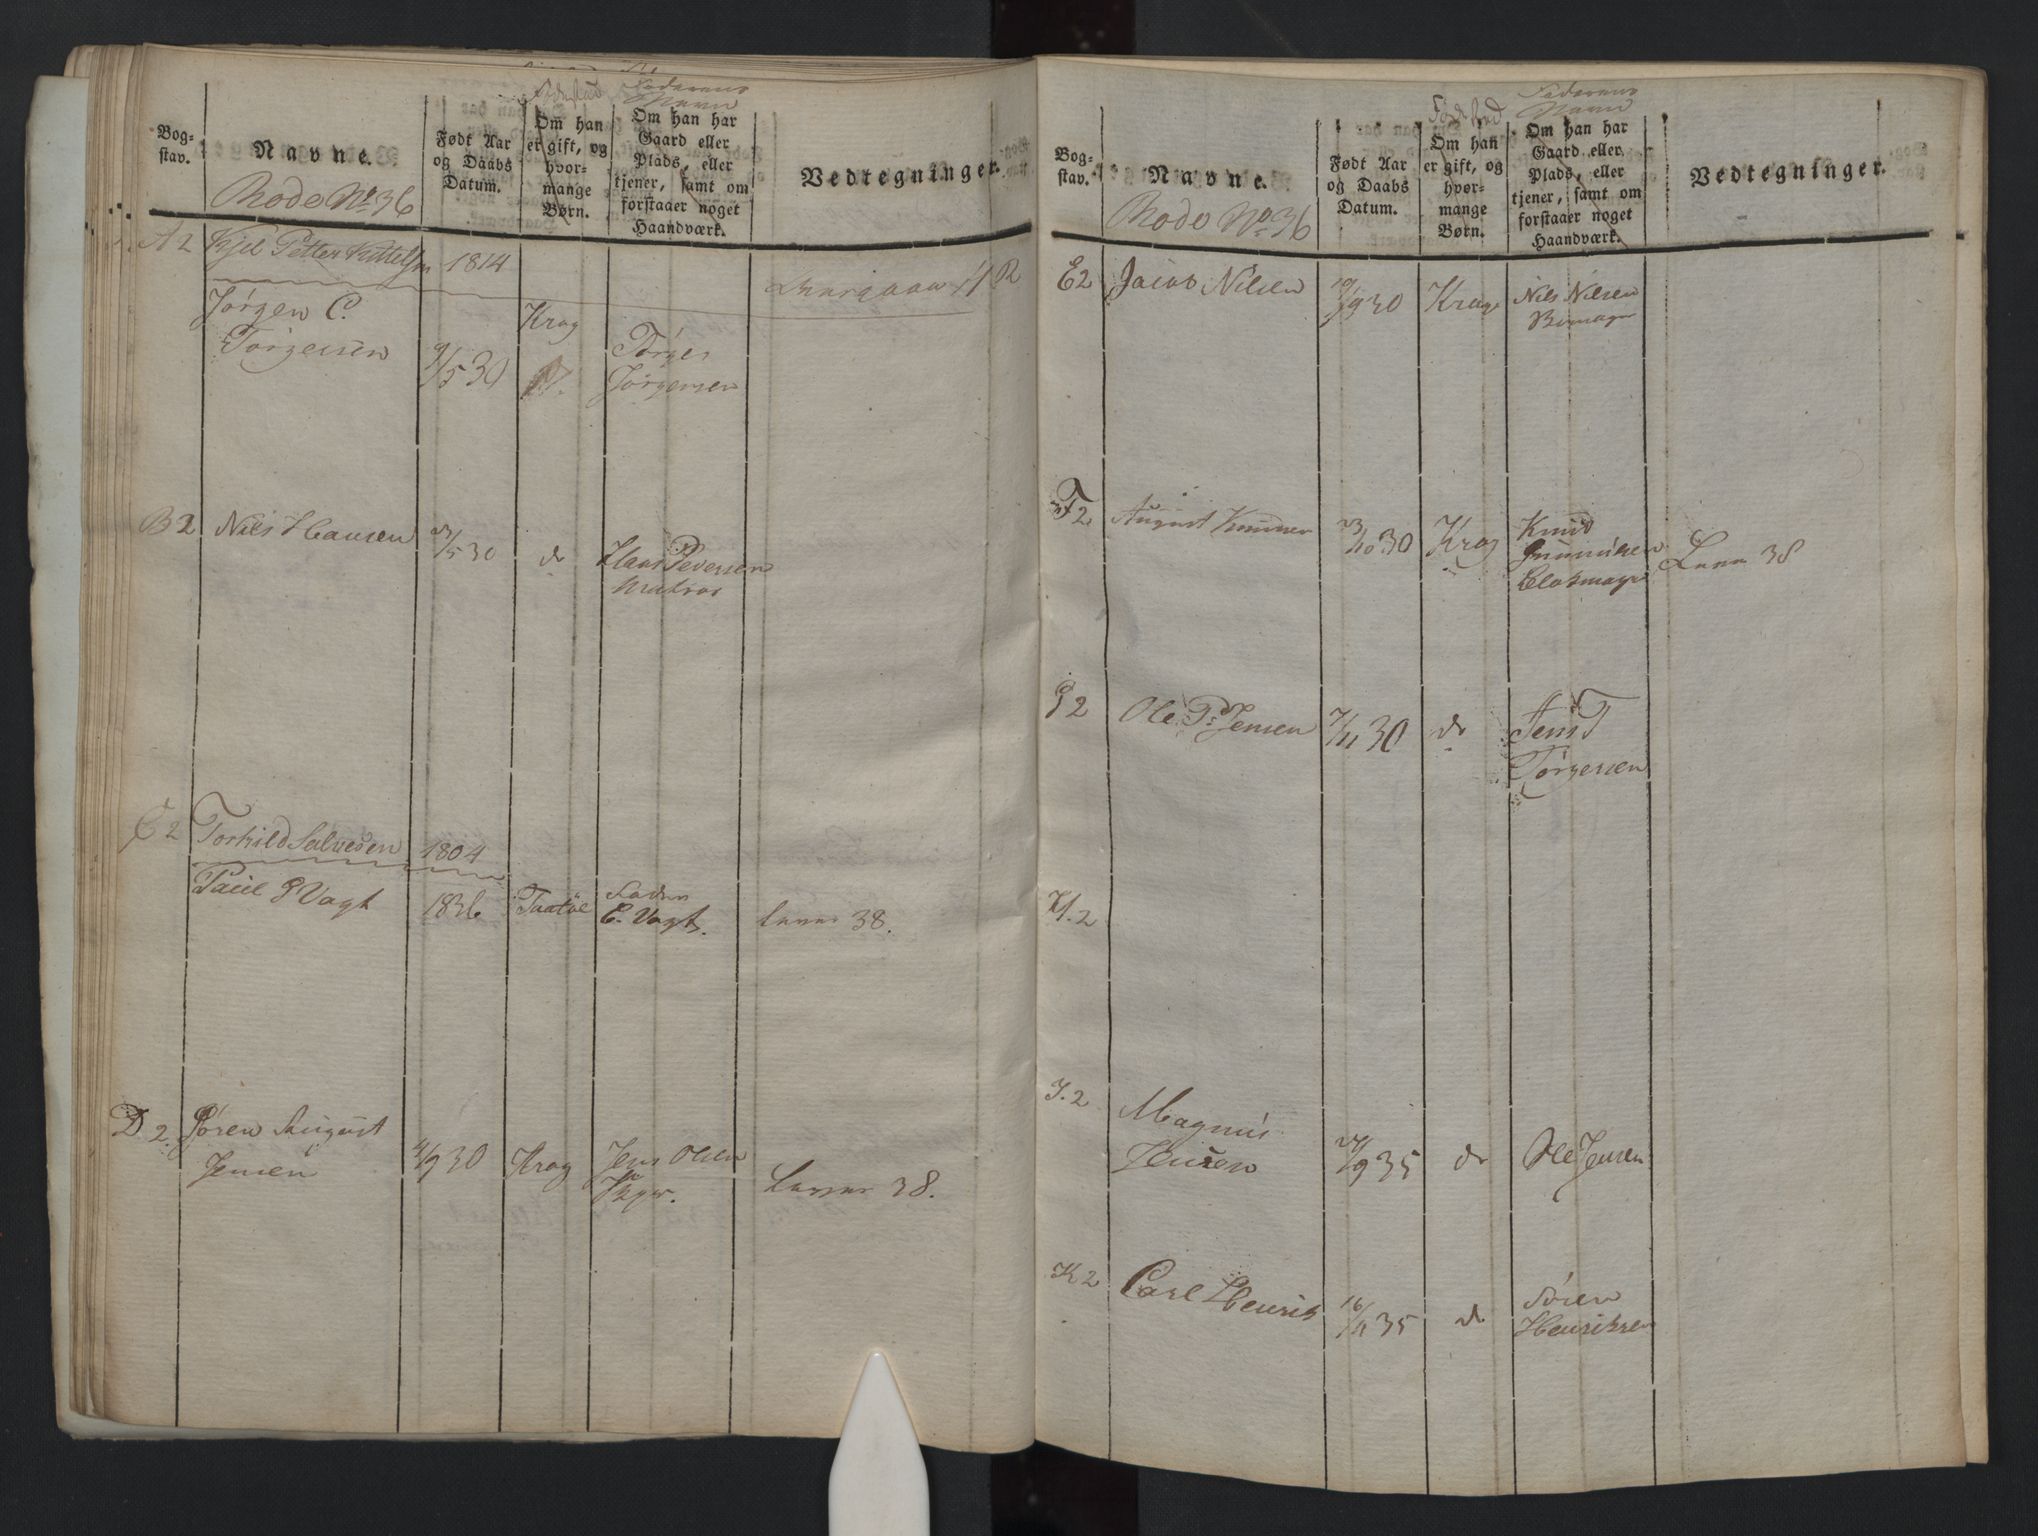 Fødestad
Faderens
Navn
Bog-
stav.
Navne.
Født Aar
og Daabs
Datum.
Om han
er gift, og
hvor-
mange
Børn.
Om han har
Gaard eller
Plads, eller
tjener, samt om
forstaaer noget
Haandværk.
Vedtegninger.
Rode No 36
A 2 Kjel Petter Kittelsen 1814
Jørgen C. Krag
Tørgersen 9/5 30 Tørger
Jørgensen
B 2 Nils Hansen 27/5 30 do Hans Pedersen
Matros
C 2 Torkild Salvesen 1804
Paul G Vagt 1836 Taatøe Fader
C. Vagt. Lever 38.
D 2 Søren August
Jensen 4/9 30 Krag Jens Olsen
Lever 38.
Fødestad
Faderens
Navn
Bog-
stav.
Navne.
Født Aar
og Daabs
Datum.
Om han
er gift, og
hvor-
mange
Børn.
Om han har
Gaard eller
Plads, eller
tjener, samt om
forstaaer noget
Haandværk.
Vedtegninger.
Rode No 36
E 2 Jacob Nilsen 19/9 30 Krag Nils Nilsen
F 2 August Knudsen 23/10 30 Krag Knud
Gunnulsen
Lever 38
G 2 Ole P. Jensen 7/11 30 do Jens T
Tørgersen
H. 2
I. 2 Magnus
Jensen 24/9 35 do Ole Jensen
K 2 Carl Henrik 16/11 35 do Søren
Henriksen